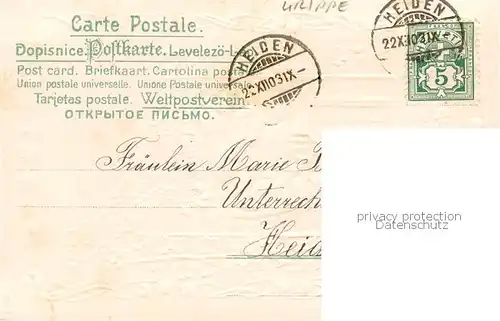 KRIPPE
Carte Postale.
Dopisnice. Postkarte. Levelező-L
Post card. Briefkaart. Cartolina posta
Union postale universelle. Unione Postale universale
Tarjetas postale. Weltpostverein.
ОТКРЫТОЕ ПИСЬМО.
HEIDEN
22.XII.03.IX-
HEIDEN
22.XII.03.IX-
5
Fräulein Marie
Unterrech
Heid
privacy protection
Datenschutz